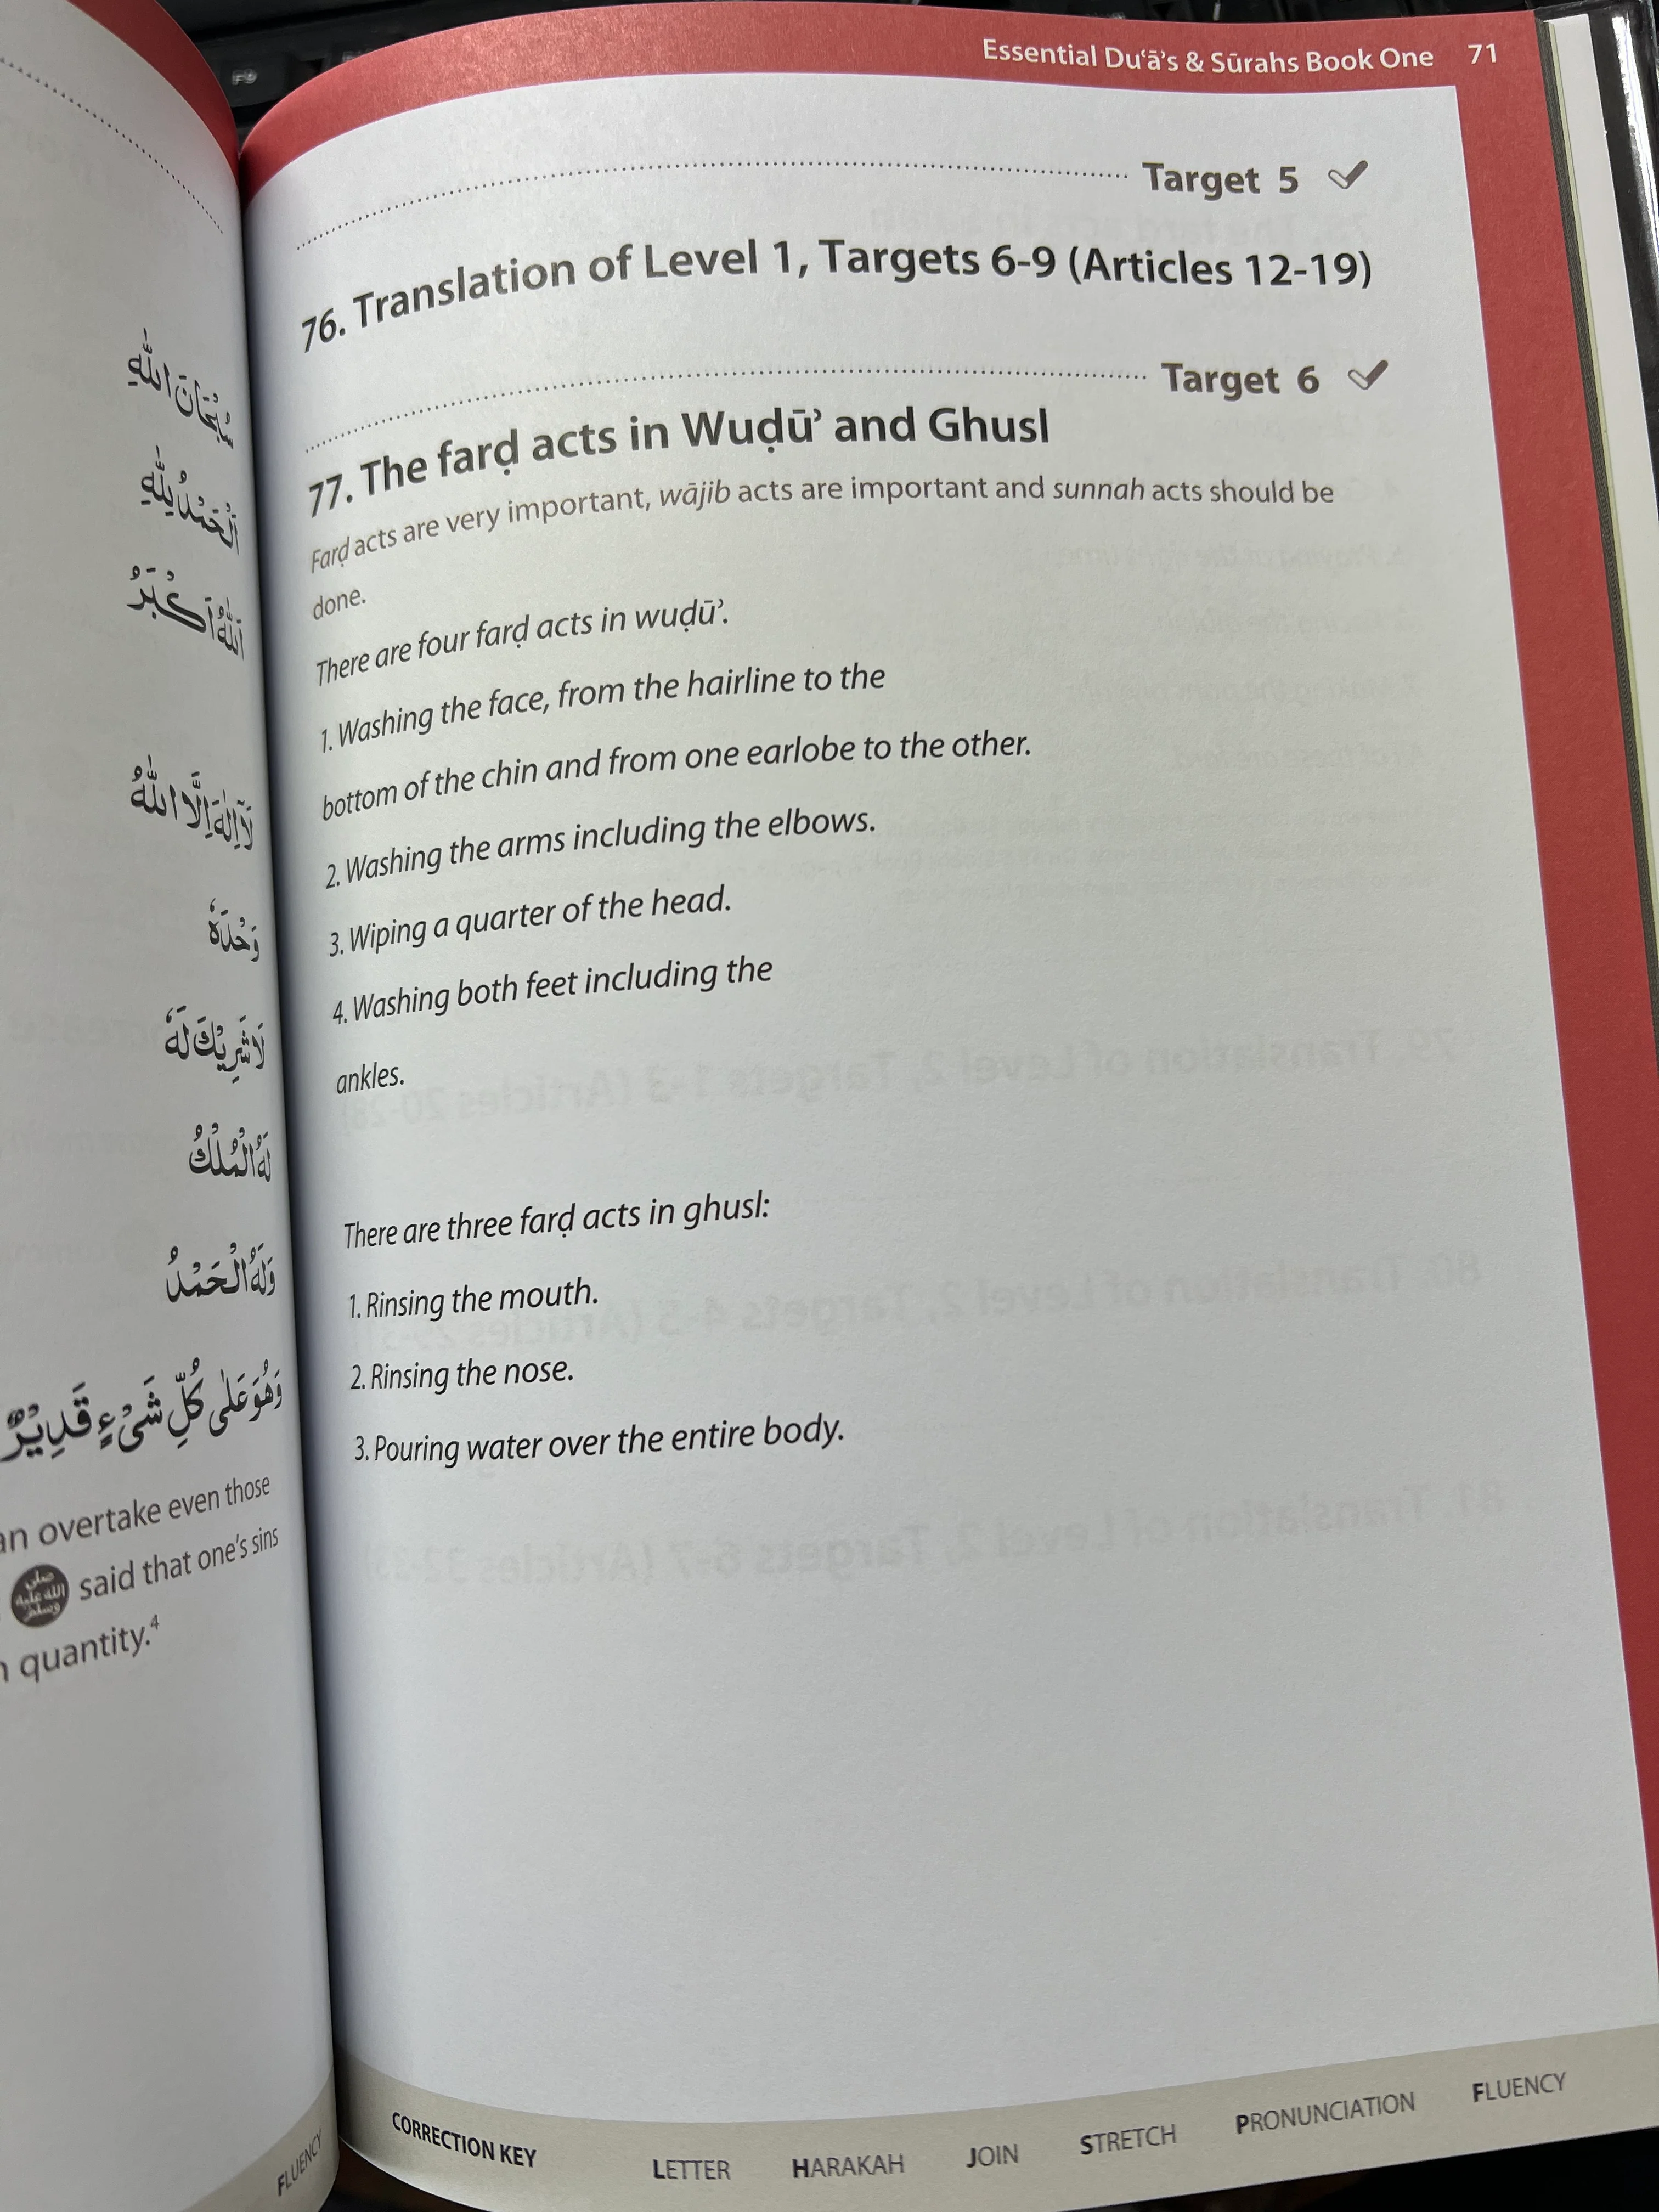 سُبْحَانَ اللّٰهِ
اَلْحَمْدُ لِلّٰهِ
اَللّٰهُ اَكْبَرُ
لَآ اِلٰهَ اِلَّا اللّٰهُ
وَحْدَهٗ
لَا شَرِيْكَ لَهٗ
لَهُ الْمُلْكُ
وَلَهُ الْحَمْدُ
وَهُوَ عَلٰى كُلِّ شَىْءٍ قَدِيْرٌ
overtake even those
صلى الله عليه وسلم said that one's sins
quantity.4
FLUENCY
Essential Du‘ā’s & Sūrahs Book One 71
Target 5
76. Translation of Level 1, Targets 6-9 (Articles 12-19)
Target 6
77. The farḍ acts in Wuḍū’ and Ghusl
Farḍ acts are very important, wājib acts are important and sunnah acts should be
done.
There are four farḍ acts in wuḍū’.
1. Washing the face, from the hairline to the
bottom of the chin and from one earlobe to the other.
2. Washing the arms including the elbows.
3. Wiping a quarter of the head.
4. Washing both feet including the
ankles.
There are three farḍ acts in ghusl:
1. Rinsing the mouth.
2. Rinsing the nose.
3. Pouring water over the entire body.
CORRECTION KEY LETTER HARAKAH JOIN STRETCH PRONUNCIATION FLUENCY